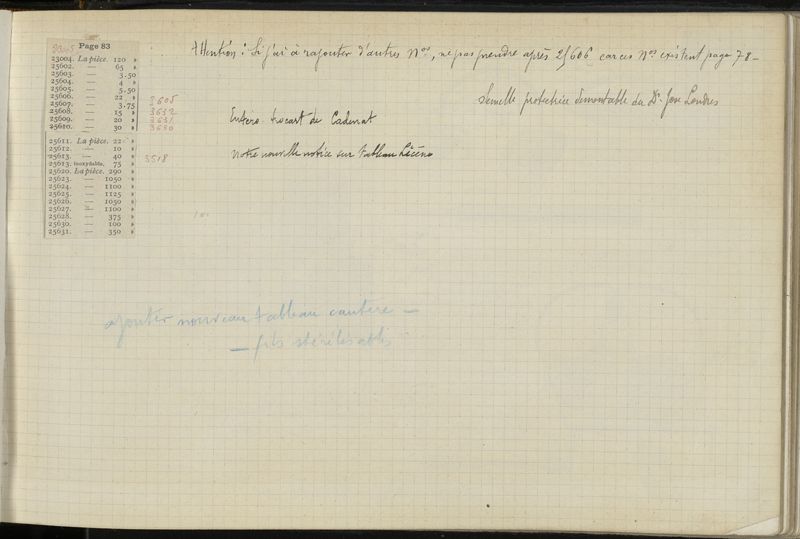 Page 83
23004. La pièce. 120 »
25602. — 65 »
25603. — 3.50
25604. — 4 »
25605. — 5.50
25606. — 22 »
25607. — 3.75
25608. — 15 »
25609. — 20 »
25610. — 30 »
25611. La pièce. 22 »
25612. — 10 »
25613. — 40 »
25613. inoxydable, 75 »
25620. La pièce. 290 »
25623. — 1050 »
25624. — 1100 »
25625. — 1125 »
25626. — 1050 »
25627. — 1100 »
25628. — 375 »
25630. — 100 »
25631. — 350 »
3632
3631
3630
3518
Attention : Si j'ai à rajouter d'autres Nos, ne pas prendre après 25606 car ces Nos existent page 78 —
Semelle protectrice démontable du Dr Jose Londres
Entéro-trocart de Cadenat
Notre nouvelle notice sur tableau
ajouter nouveau tableau cautère —
— fils stérilisables